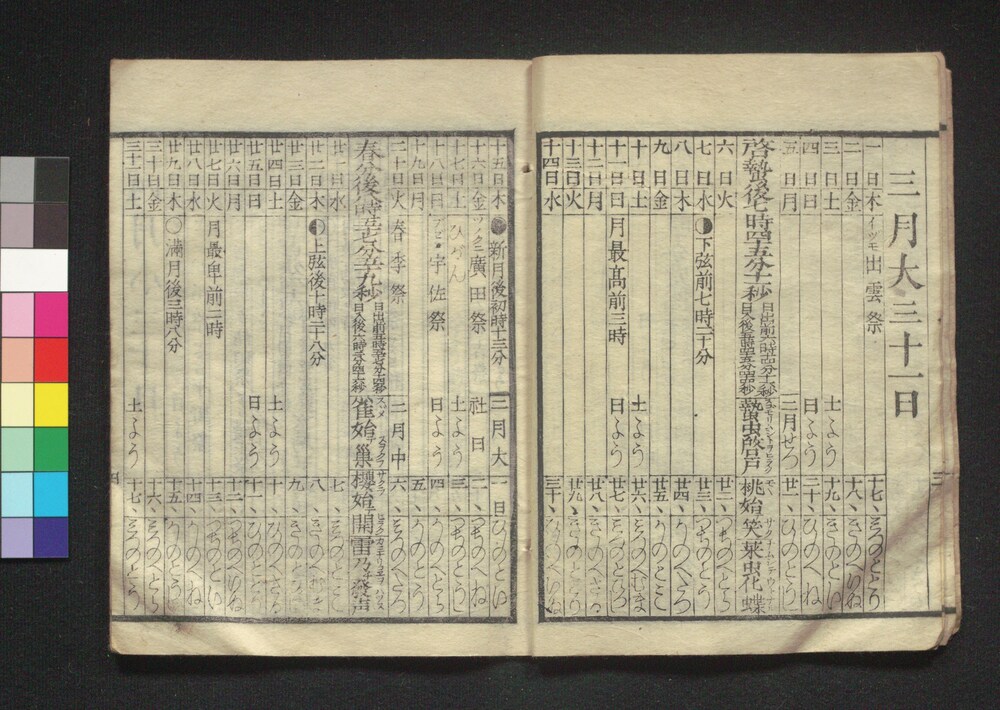 三月大三十一日
一日木 イヅモ出雲祭 十七、みつのととり
二日金 十八、きのへいぬ
三日土 土よう 十九、きのとのい
四日日 日よう 二十、ひのへね
五日月 二月せつ 廿一、ひのとのうし
啓蟄後七時四十五分十一秒 蟄虫啓戸 桃始笑 菜虫化蝶
六日火 廿二、
七日水 下弦前七時二十分 廿三、つちのとのう
八日木 廿四、かのへたつ
九日金 廿五、かのとのミ
十日土 土よう 廿六、
十一日日 月最高前三時 日よう 廿七、
十二日月 廿八、きのへさる
十三日火 廿九、きのととり
十四日水 三十、ひのへいぬ
十五日木 新月後初時十三分 三月大 一日 ひのとのい
十六日金 ツノクニ廣田祭 社日 二、つちのへね
十七日土 ひがん 土よう 三、つちのとのうし
十八日日 宇佐祭 日よう 四、かのへとら
十九日月 五、かのとのう
二十日火 春季祭 三月中 六、みつのへたつ
春分後 雀始巣 櫻始開 雷乃發声
廿一日水 七、みつのとのミ
廿二日木 上弦後十時二十八分 八、
廿三日金 九、
廿四日土 土よう 十、ひのへさる
廿五日日 日よう 十一、ひのととり
廿六日月 十二、つちのへいぬ
廿七日火 月最卑前二時 十三、つちのとのい
廿八日水 十四、かのへね
廿九日木 満月後三時八分 十五、かのとのうし
三十日金 十六、みつのへとら
三十一日土 土よう 十七、みつのとのう